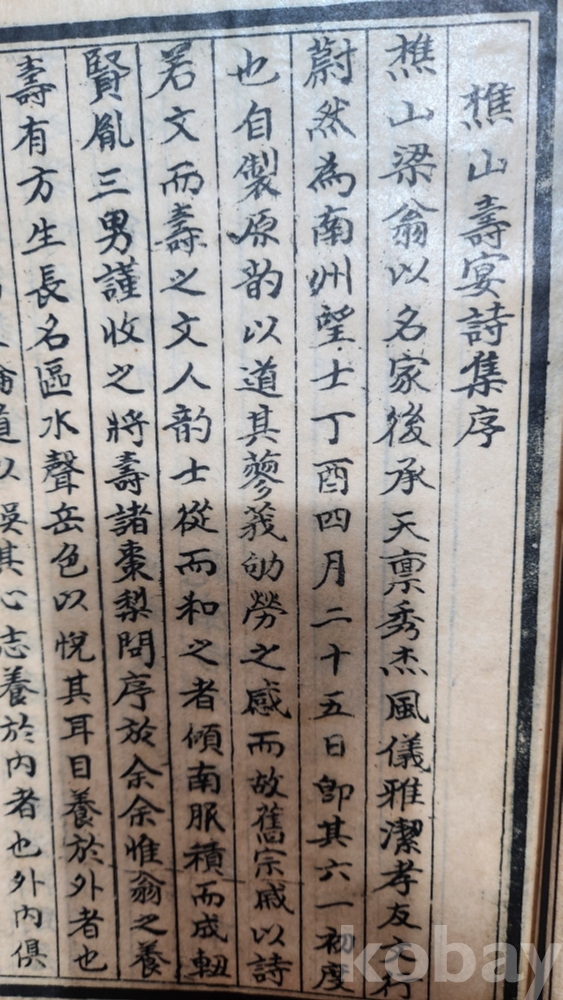 樵山壽宴詩集序
樵山梁翁以名家後承天禀秀杰風儀雅潔孝友文行
蔚然為南州望士丁酉四月二十五日卽其六一初度
也自製原韵以道其蓼莪劬勞之感而故舊宗戚以詩
若文而壽之文人韵士從而和之者傾南服積而成軸
賢胤三男謹收之將壽諸棗梨問序於余余惟翁之養
壽有方生長名區水聲岳色以悅其耳目養於外者也
道以娛其心志養於內者也外內俱
kobay